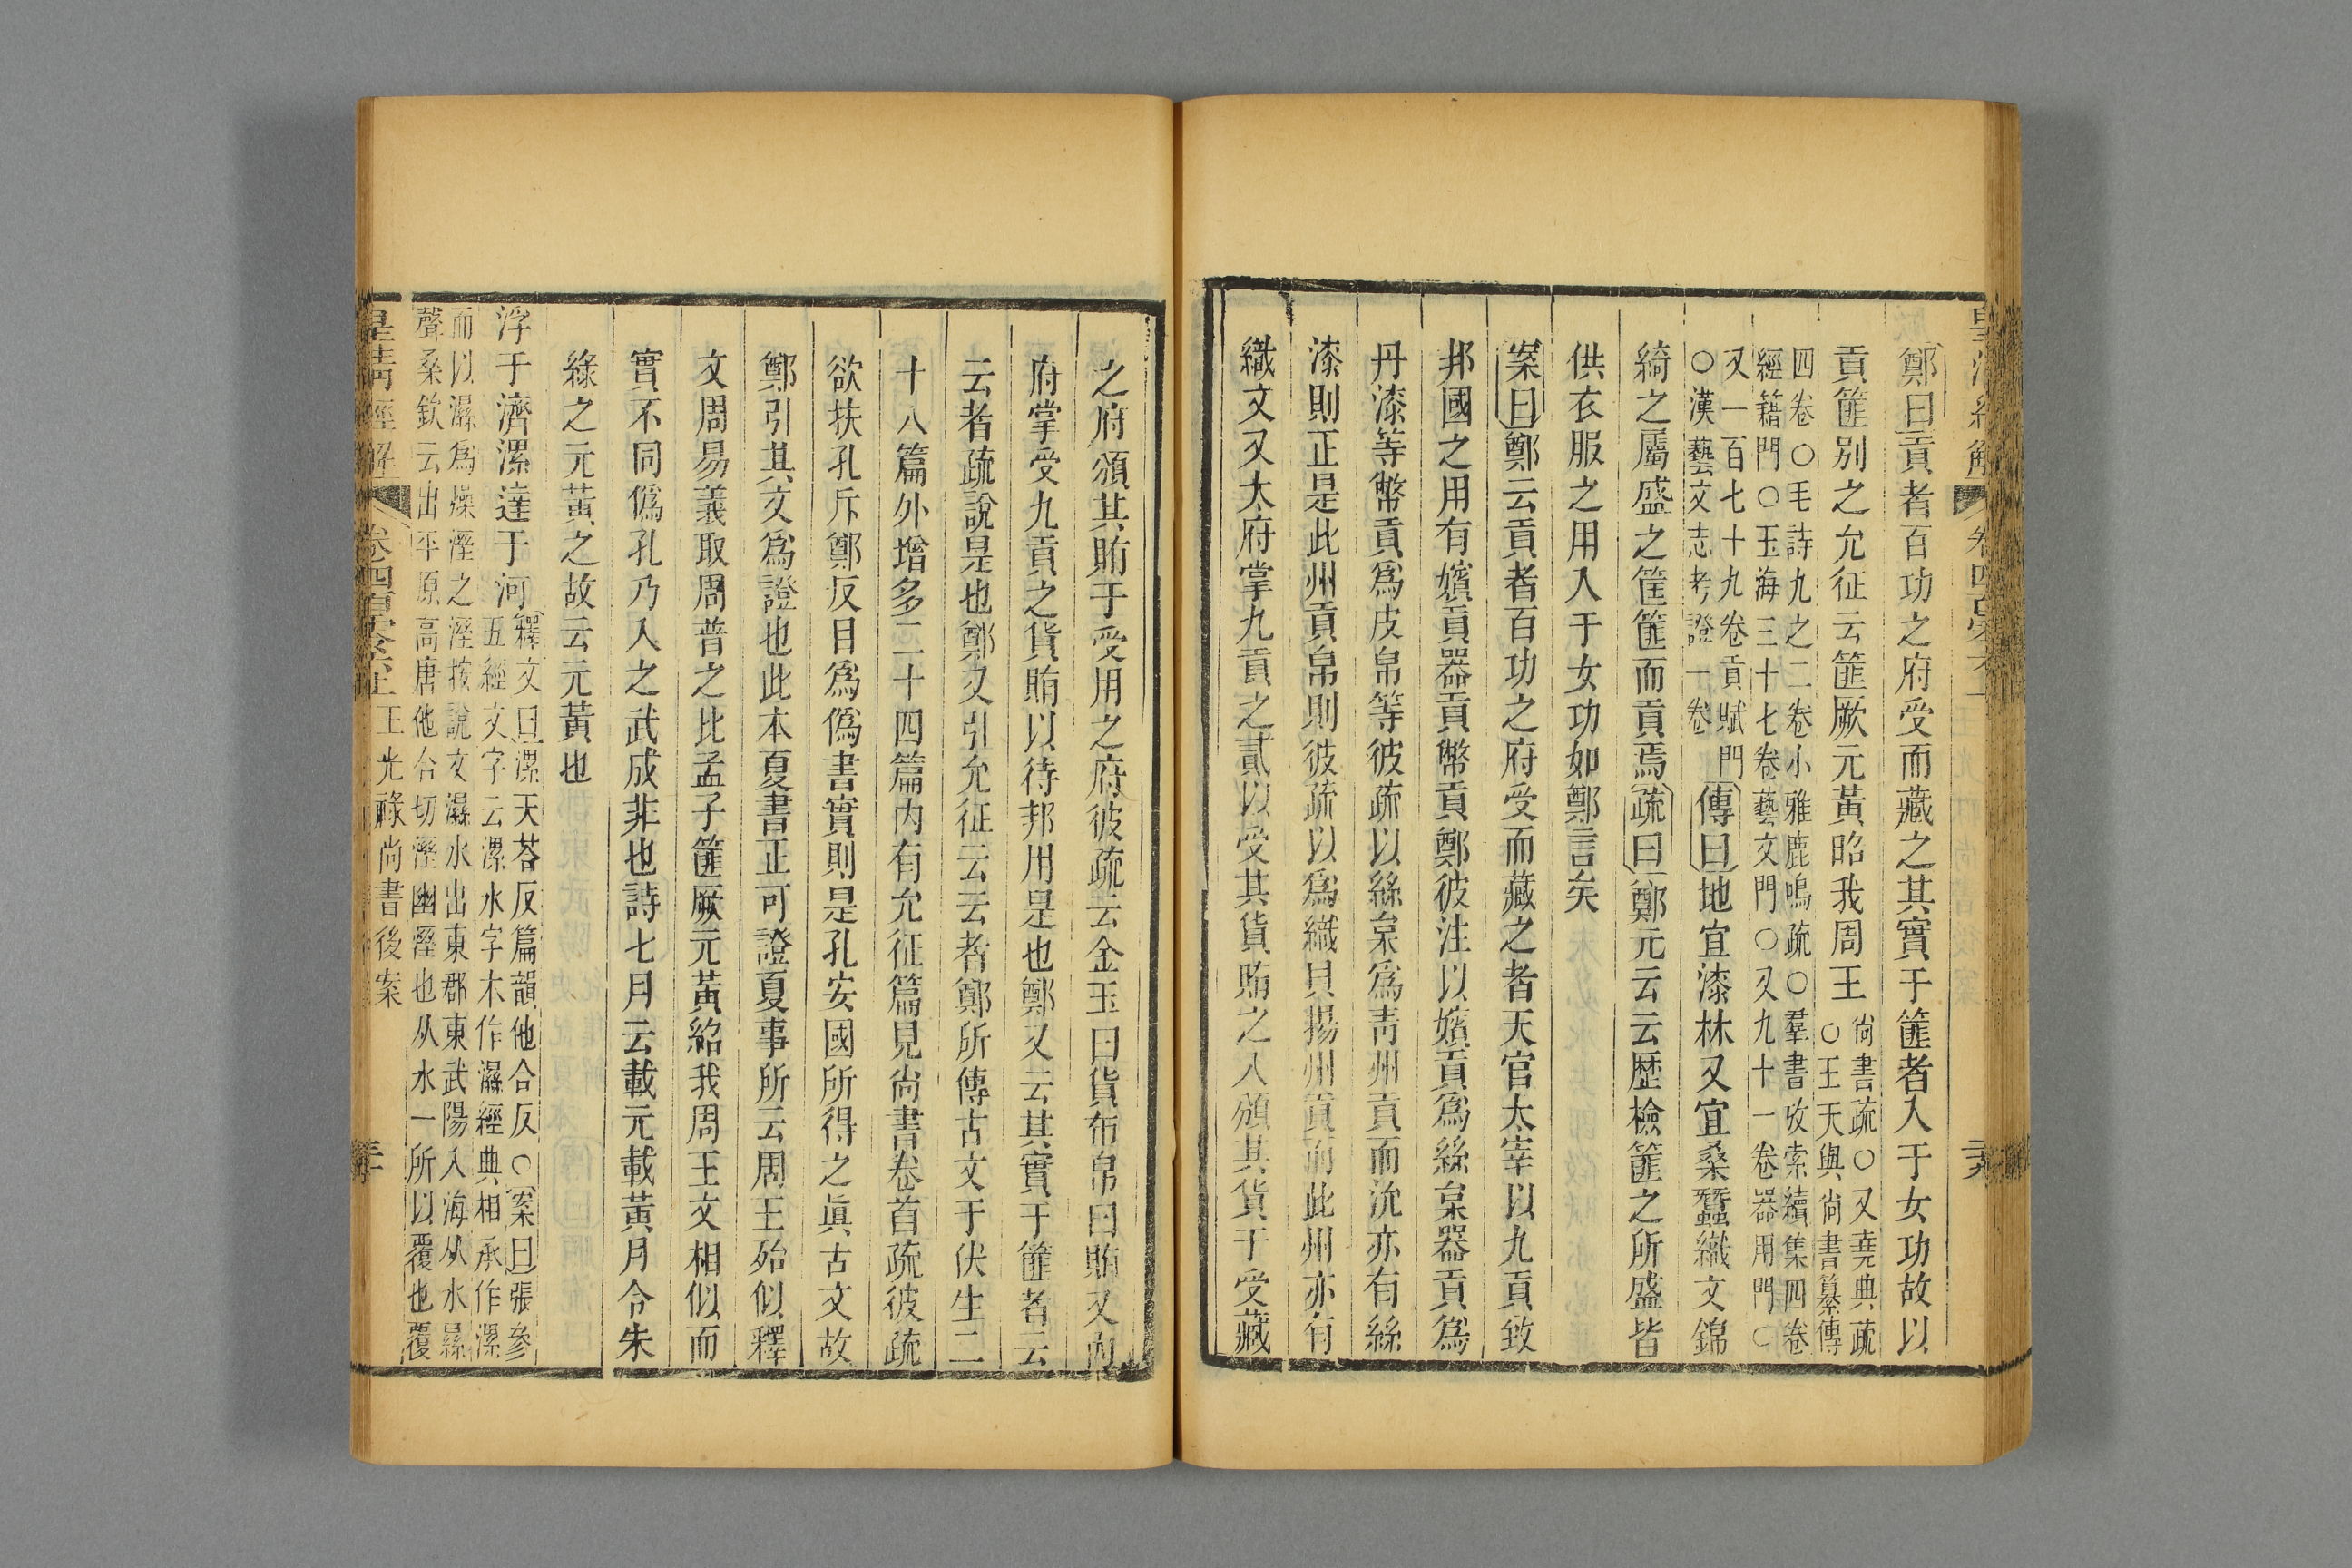 鄭曰貢者百功之府受而藏之其實于篚者入于女功故以
貢篚别之允征云篚厥元黃昭我周王
尙書疏○又堯典疏
○王天與尙書纂傳
四卷○毛詩九之二卷小雅鹿鳴疏○羣書攷索續集四卷
經籍門○玉海三十七卷藝文門○又九十一卷器用門○
又一百七十九卷貢賦門
○漢藝文志考證一卷
傳曰地宜漆林又宜桑蠶織文錦
綺之屬盛之筐篚而貢焉疏曰鄭元云云歷檢篚之所盛皆
供衣服之用入于女功如鄭言矣
案曰鄭云貢者百功之府受而藏之者天官太宰以九貢致
邦國之用有嬪貢器貢幣貢鄭彼注以嬪貢爲絲枲器貢爲
丹漆等幣貢爲皮帛等彼疏以絲枲爲靑州貢而沇亦有絲
漆則正是此州貢帛則彼疏以爲織貝揚州貢而此州亦有
織文又大府掌九貢之貳以受其貨賄之入頒其貨于受藏
之府頒其賄于受用之府彼疏云金玉曰貨布帛曰賄又內
府掌受九貢之貨賄以待邦用是也鄭又云其實于篚者云
云者疏說是也鄭又引允征云云者鄭所傳古文于伏生二
十八篇外增多二十四篇內有允征篇見尙書卷首疏彼疏
欲扶孔斥鄭反目爲僞書實則是孔安國所得之眞古文故
鄭引其文爲證也此本夏書正可證夏事所云周王殆似釋
文周易義取周普之比孟子篚厥元黃紹我周王文相似而
實不同僞孔乃入之武成非也詩七月云載元載黃月令朱
綠之元黃之故云元黃也
浮于濟漯達于河
釋文曰漯天荅反篇韻他合反○案曰張參
五經文字云漯水字本作濕經典相承作漯
而以濕爲燥溼之溼按說文濕水出東郡東武陽入海从水㬎
聲桑欽云出平原高唐他合切溼幽溼也从水一所以覆也覆
王光祿尙書後案